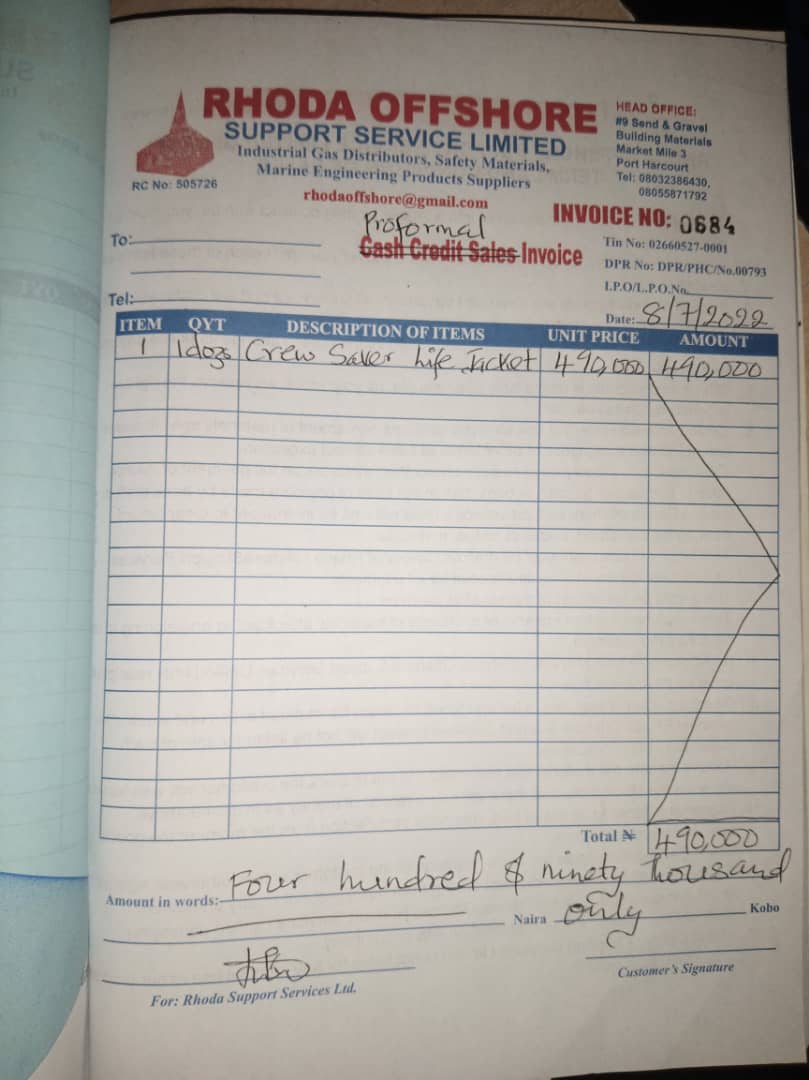 RHODA OFFSHORE
SUPPORT SERVICE LIMITED
Industrial Gas Distributors, Safety Materials,
Marine Engineering Products Suppliers
rhodaoffshore@gmail.com
RC No: 505726
HEAD OFFICE:
#9 Send & Gravel
Building Materials
Market Mile 3
Port Harcourt
Tel: 08032386430,
08055871792
INVOICE NO: 0684
Proformal
Cash Credit Sales Invoice
To:
Tel:
Tin No: 02660527-0001
DPR No: DPR/PHC/No.00793
I.P.O/L.P.O.No.
Date: 8/7/2022
ITEM QYT DESCRIPTION OF ITEMS UNIT PRICE AMOUNT
1 1dozs Crew Saver Life Jacket 490,000 490,000
Total ₦ 490,000
Amount in words:- Four hundred & ninety thousand
Naira only Kobo
For: Rhoda Support Services Ltd.
Customer's Signature